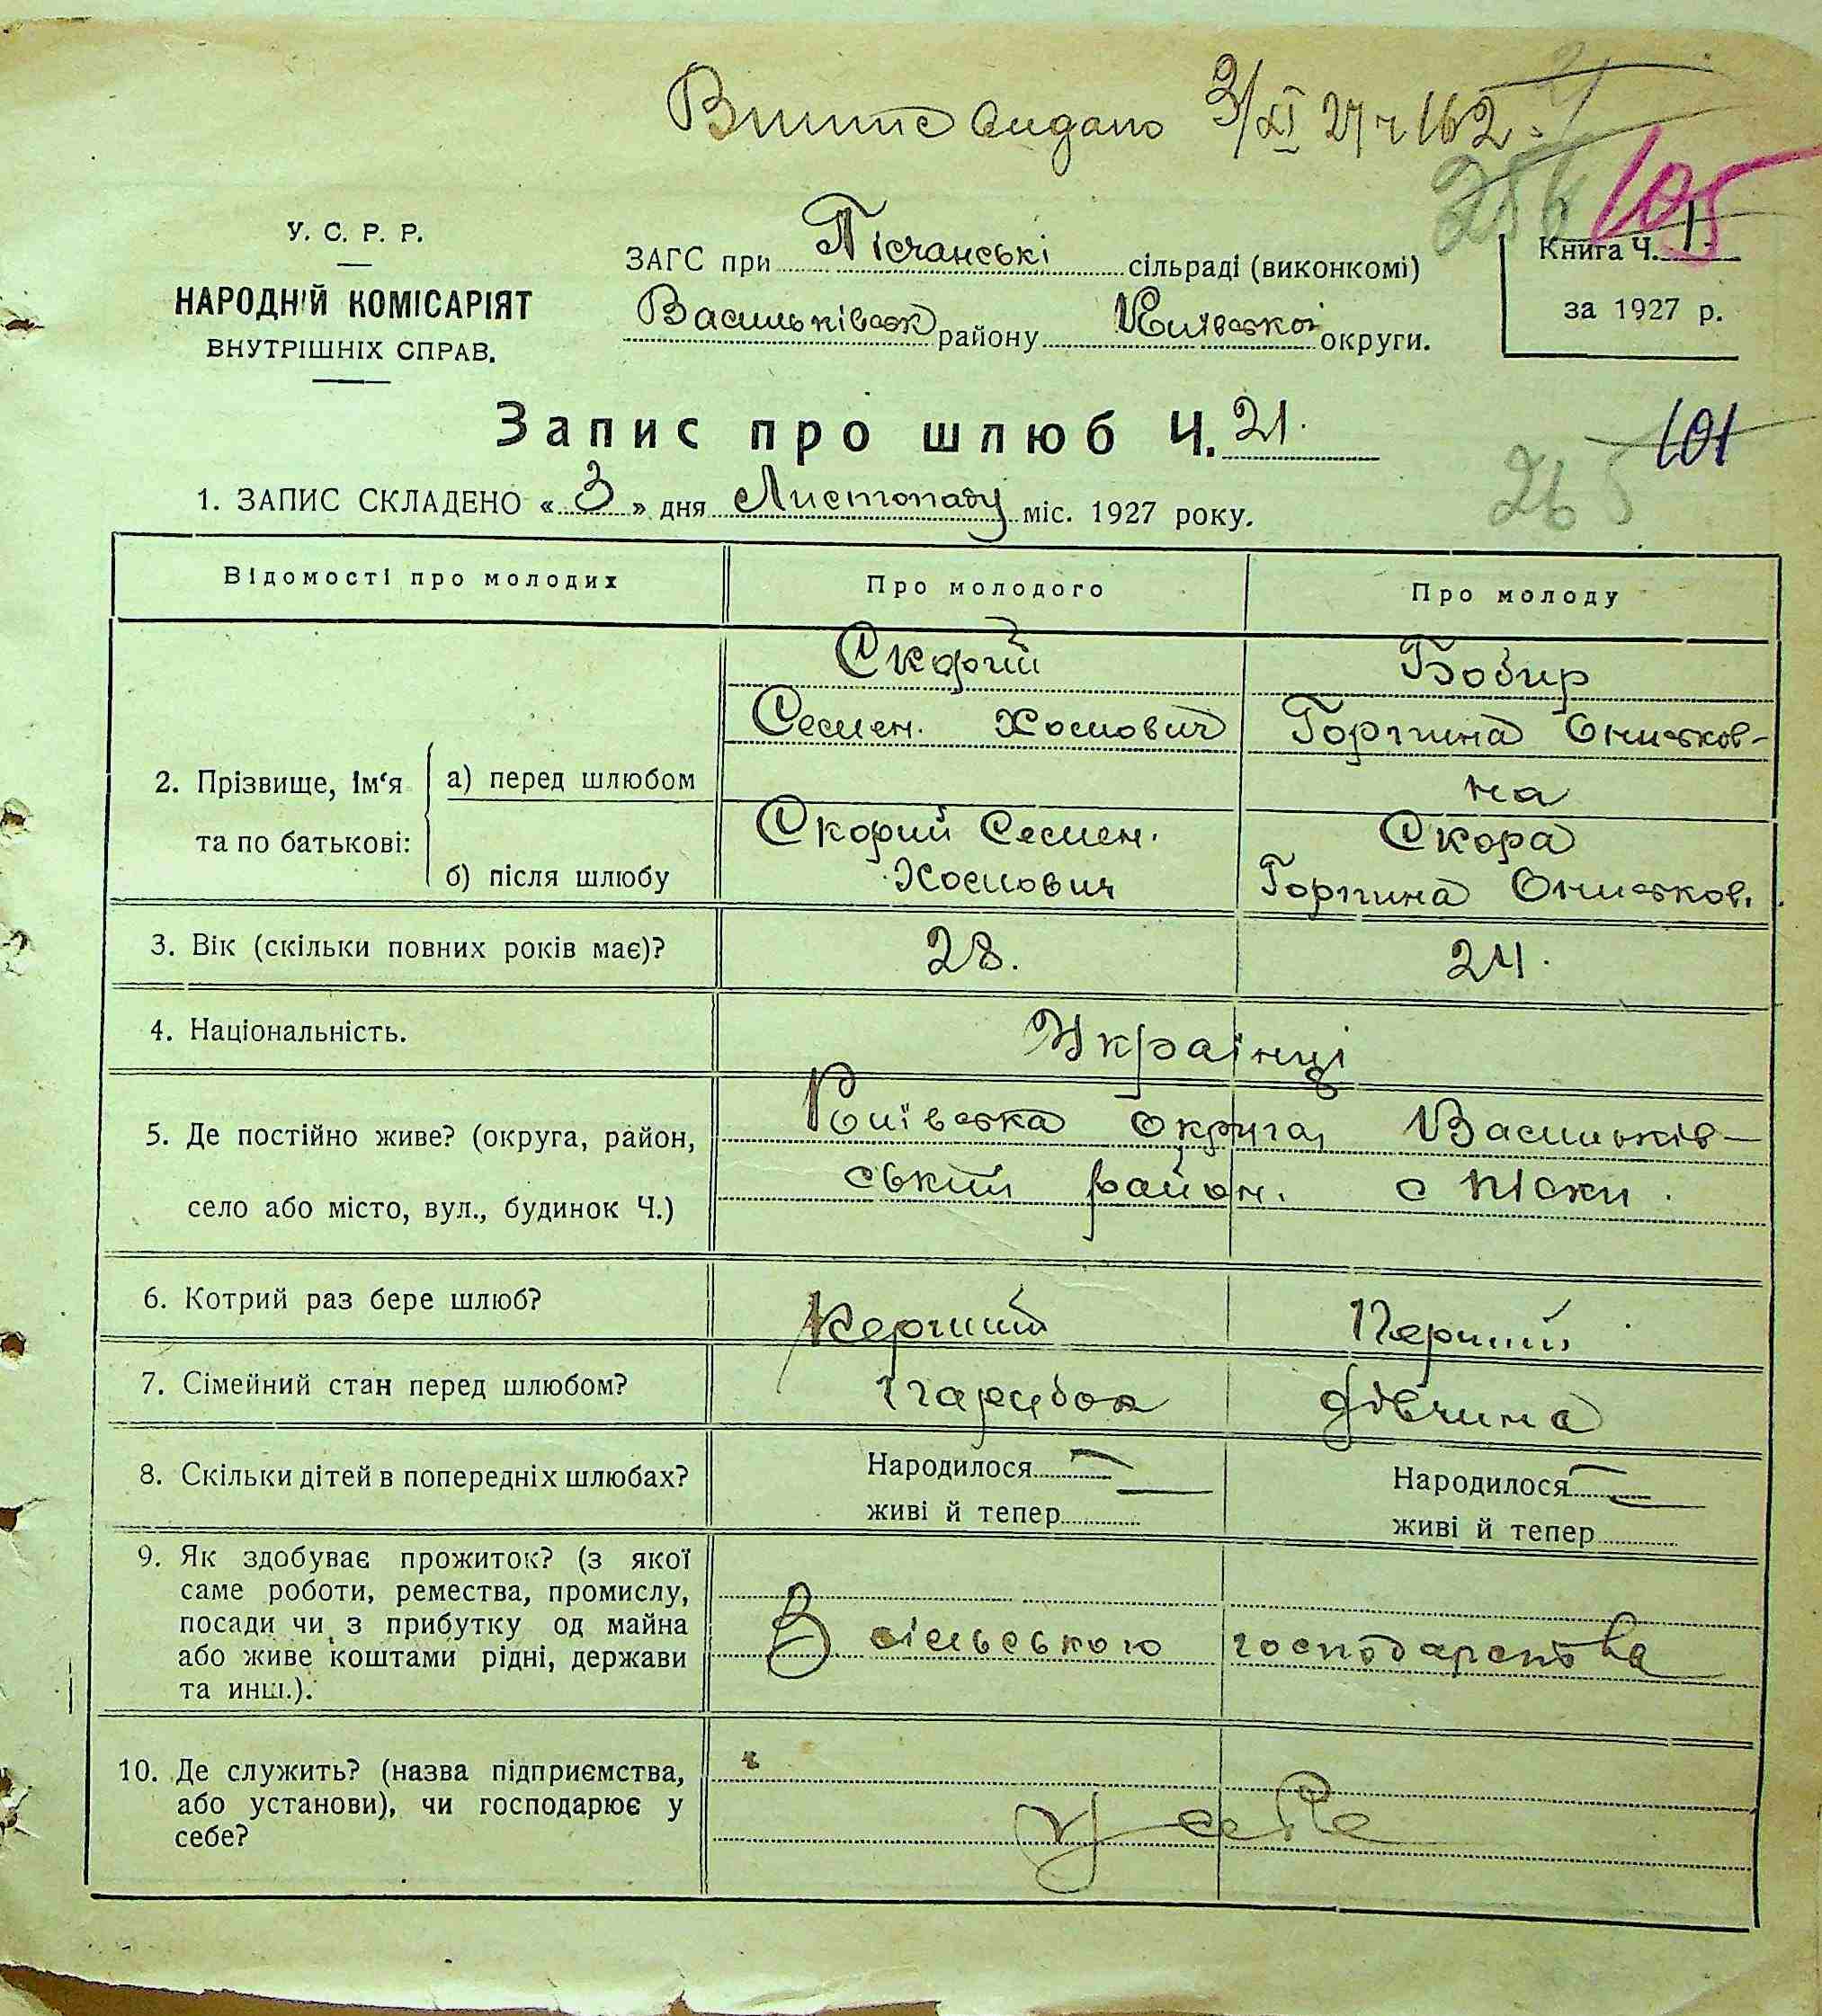 Випис видано 3/XI 27 ч 162.
105
У. С. Р. Р.
НАРОДНІЙ КОМІСАРІЯТ
ВНУТРІШНІХ СПРАВ.
ЗАГС при Пісчанські сільраді (виконкомі)
Васильківськ району Київської округи.
Книга Ч. 1.
за 1927 р.
Запис про шлюб Ч. 21.
101
265
1. ЗАПИС СКЛАДЕНО «3» дня Листопаду міс. 1927 року.
Відомості про молодих Про молодого Про молоду
Скорий Бобир
Семен. Хомович Горпина Онисков-
2. Прізвище, Ім'я та по батькові: а) перед шлюбом на
Скорий Семен. Скора
б) після шлюбу Хомович Горпина Онисков.
3. Вік (скільки повних років має)? 28. 24.
4. Національність. Українці
5. Де постійно живе? (округа, район, Київська округа, Васильків-
село або місто, вул., будинок Ч.) ський район. с Піски.
6. Котрий раз бере шлюб? Перший Перший
7. Сімейний стан перед шлюбом? Парубок дівчина
8. Скільки дітей в попередніх шлюбах? Народилося — Народилося —
живі й тепер живі й тепер
9. Як здобуває прожиток? (з якої
саме роботи, ремества, промислу,
посади чи з прибутку од майна
або живе коштами рідні, держави
та инш.). З сільського господарства
10. Де служить? (назва підприємства,
або установи), чи господарює у
себе? У себе